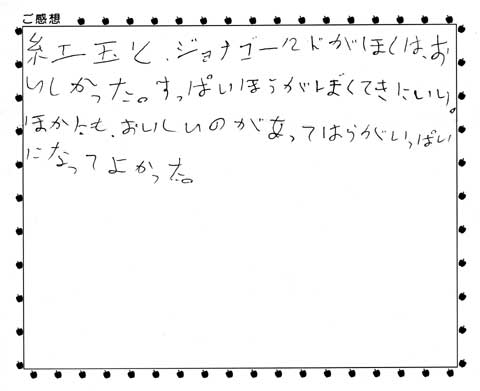 ご感想
紅玉と、ジョナゴールドがぼくは、お
いしかった。すっぱいほうがぼくてきにいい。
ほかにも、おいしいのがあってはらがいっぱい
になってよかった。